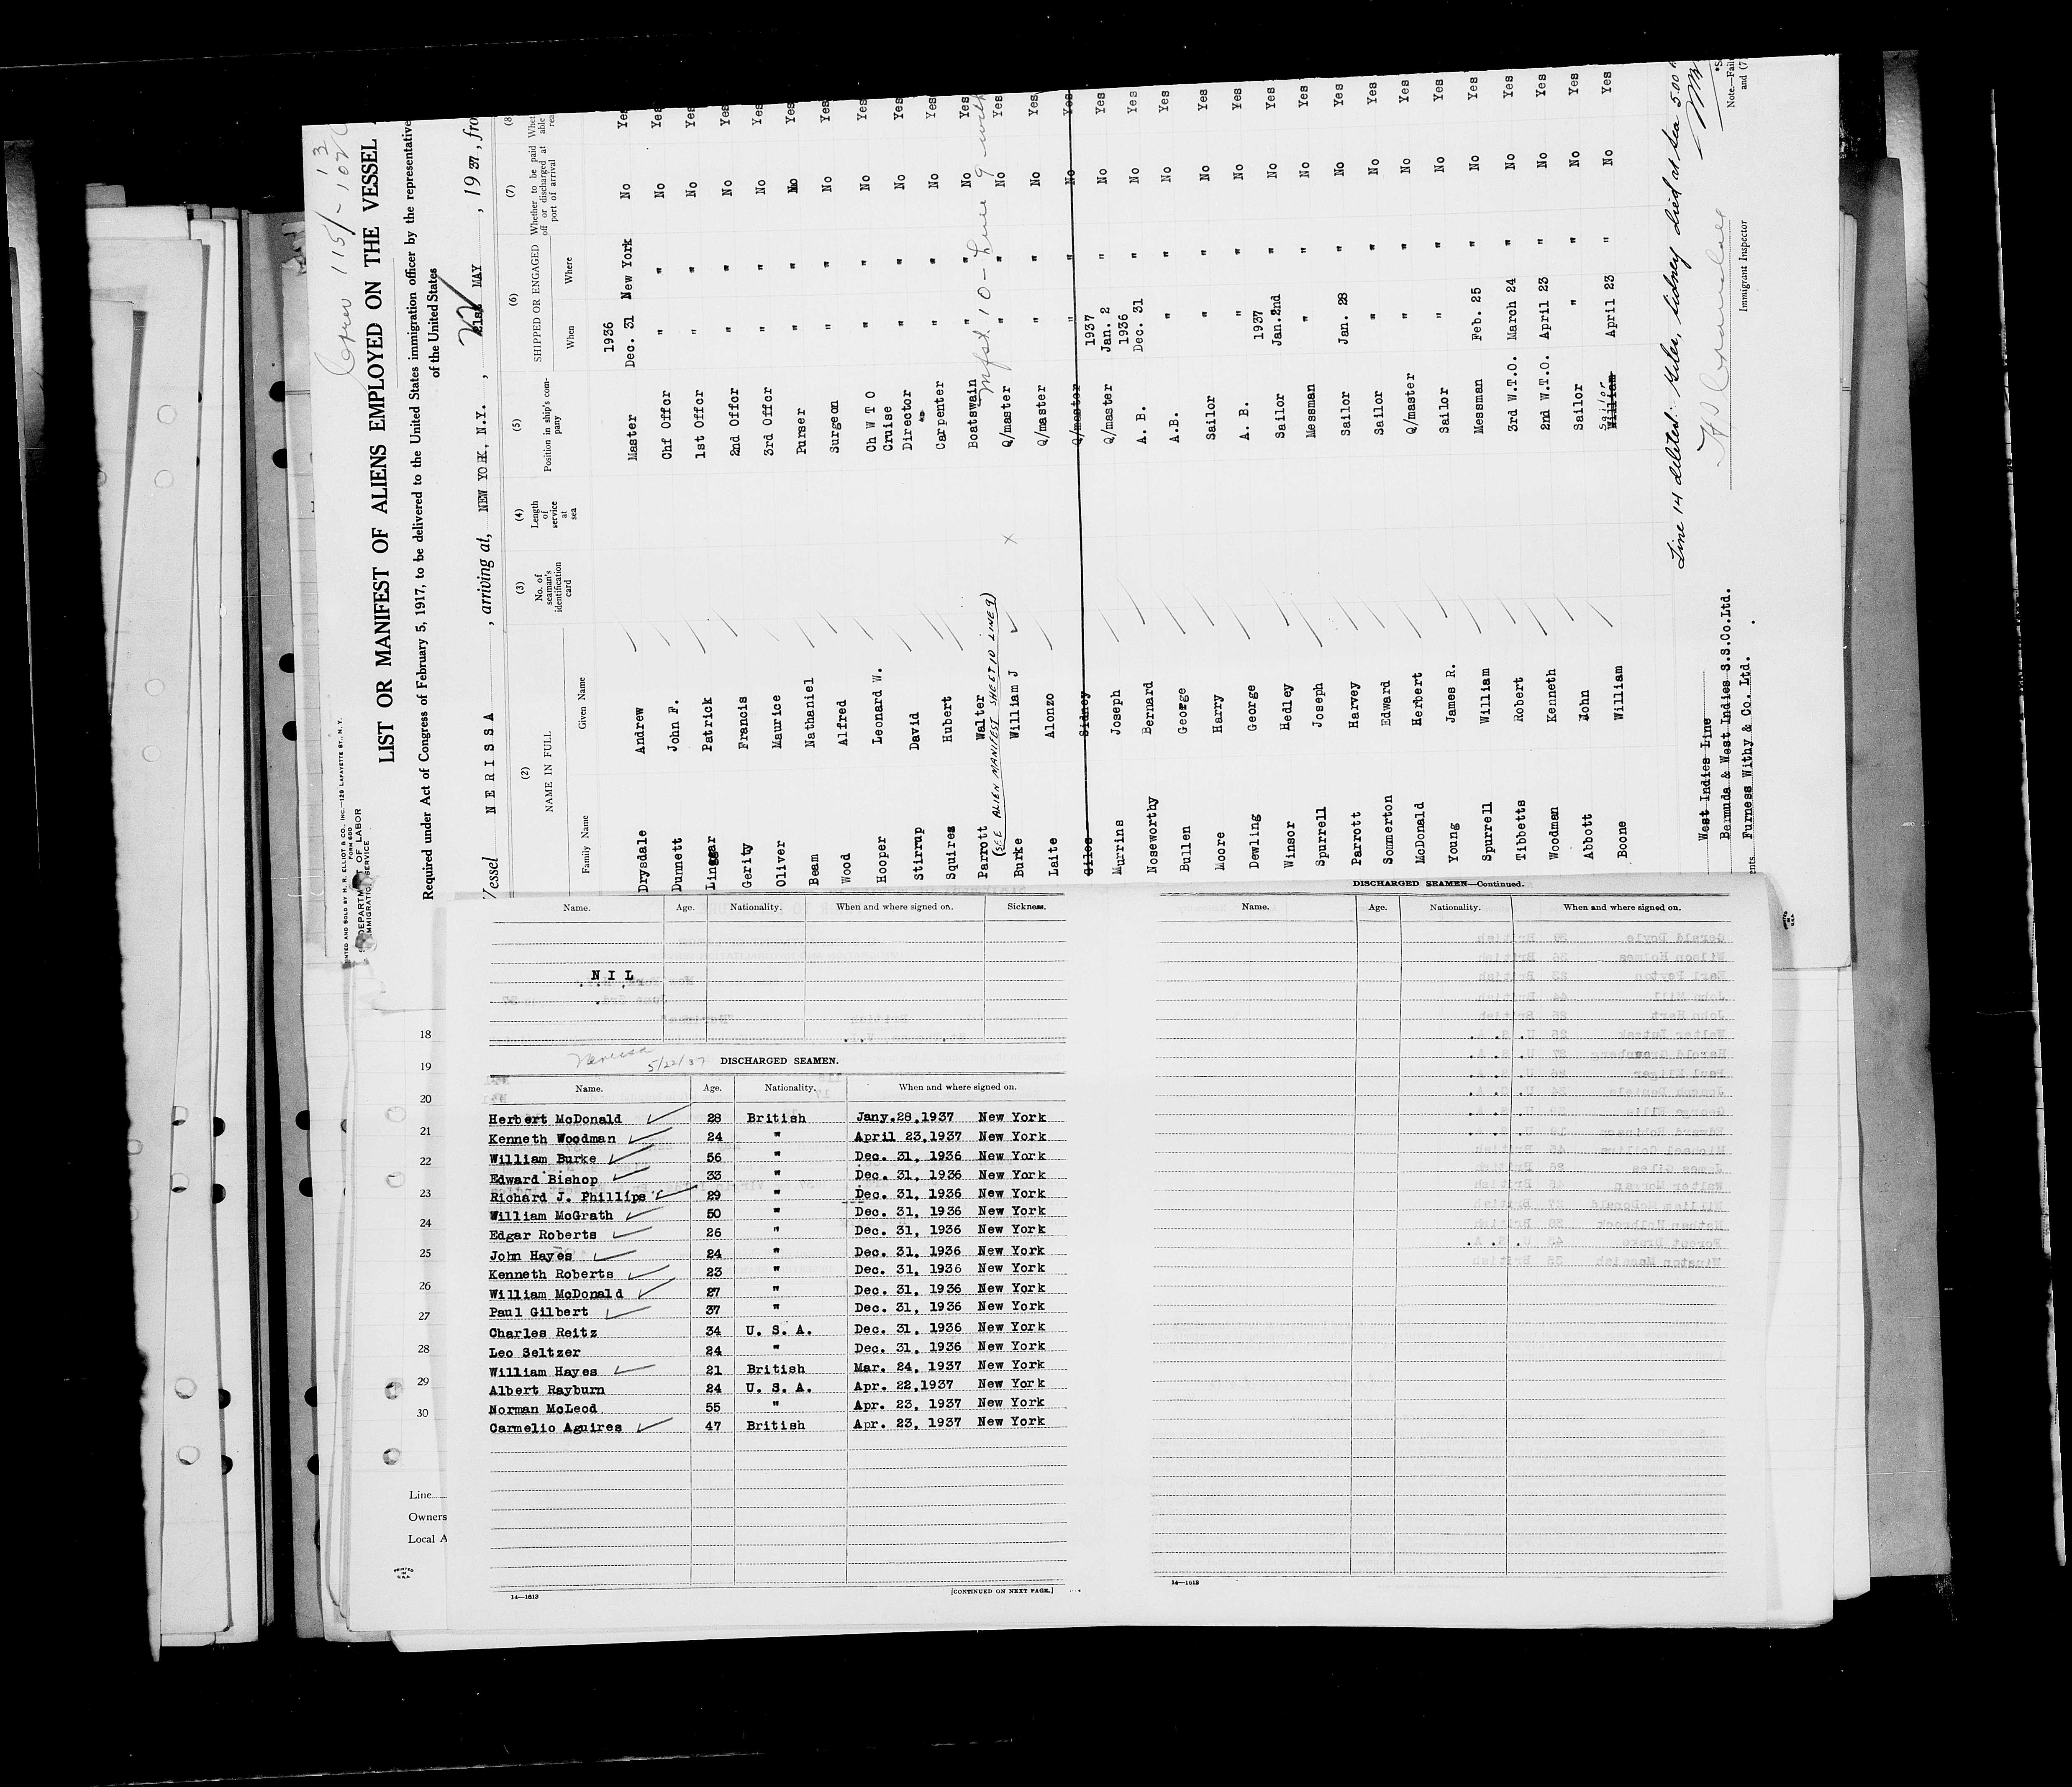 Crew 115/-
13
LIST OR MANIFEST OF ALIENS EMPLOYED ON THE VESSEL
Required under Act of Congress of February 5, 1917, to be delivered to the United States immigration officer by the representative
of the United States
Vessel NERISSA , arriving at, NEW YORK, N.Y. , 22 21st MAY , 1937, fro
(2) NAME IN FULL
(3) No. of seaman's identification card
(4) Length of service at sea
(5) Position in ship's company
(6) SHIPPED OR ENGAGED
(7) Whether to be paid off or discharged at port of arrival
(8
Family Name Given Name When Where
1936
Drysdale Andrew Master Dec. 31 New York No Yes
Dunnett John F. Chf Offcr " " No Yes
Linggar Patrick 1st Offcr " " No Yes
Gerity Francis 2nd Offcr " " No Yes
Oliver Maurice 3rd Offcr " " No Yes
Beam Nathaniel Purser " " No Yes
Wood Alfred Surgeon " " No Yes
Hooper Leonard W. Ch W T O " " No Yes
Cruise
Stirrup David Director " " No Yes
Squires Hubert Carpenter " " No Yes
Parrott Walter Boatswain " " No Yes
(SEE ALIEN MANIFEST SHEET 10 LINE 9) Mfst. 10 - Line 9
Burke William J Q/master " " No Yes
Laite Alonzo Q/master " " No Yes
Giles Sidney Q/master " " No Yes
1937
Murrins Joseph Q/master Jan. 2 " No Yes
1936
Noseworthy Bernard A. B. Dec. 31 " No Yes
Bullen George A.B. " " No Yes
Moore Harry Sailor " " No Yes
Dewling George A. B. " " No Yes
1937
Winsor Hedley Sailor Jan.2nd " No Yes
Spurrell Joseph Messman " " No Yes
Parrott Harvey Sailor Jan. 28 " No Yes
Sommerton Edward Sailor " " No Yes
McDonald Herbert Q/master " " No Yes
Young James R. Sailor " " No Yes
Spurrell William Messman Feb. 25 " No Yes
Tibbetts Robert 3rd W.T.O. March 24 " No Yes
Woodman Kenneth 2nd W.T.O. April 23 " No Yes
Abbott John Sailor " " No Yes
Sailor
Boone William William April 23 " No Yes
Line 14 deleted: Giles, Sidney died at Sea 5.00
West Indies Line
Bermuda & West Indies S.S.Co.Ltd.
Furness Withy & Co. Ltd.
Immigrant Inspector
Note.—Fail
and (7
Name. Age. Nationality. When and where signed on. Sickness.
NIL
Nerissa 5/22/37
DISCHARGED SEAMEN.
Name. Age. Nationality. When and where signed on.
Herbert McDonald 28 British Jany.28,1937 New York
Kenneth Woodman 24 " April 23,1937 New York
William Burke 56 " Dec. 31, 1936 New York
Edward Bishop 33 " Dec. 31, 1936 New York
Richard J. Phillips 29 " Dec. 31, 1936 New York
William McGrath 50 " Dec. 31, 1936 New York
Edgar Roberts 26 " Dec. 31, 1936 New York
John Hayes 24 " Dec. 31, 1936 New York
Kenneth Roberts 23 " Dec. 31, 1936 New York
William McDonald 27 " Dec. 31, 1936 New York
Paul Gilbert 37 " Dec. 31, 1936 New York
Charles Reitz 34 U. S. A. Dec. 31, 1936 New York
Leo Seltzer 24 " Dec. 31, 1936 New York
William Hayes 21 British Mar. 24, 1937 New York
Albert Rayburn 24 U. S. A. Apr. 22,1937 New York
Norman McLeod 55 " Apr. 23, 1937 New York
Carmelio Aguires 47 British Apr. 23, 1937 New York
14—1613
[CONTINUED ON NEXT PAGE.]
DISCHARGED SEAMEN—Continued.
Name. Age. Nationality. When and where signed on.
14—1613
18
19
20
21
22
23
24
25
26
27
28
29
30
Line
Owners
Local A
PRINTED IN U.S.A.